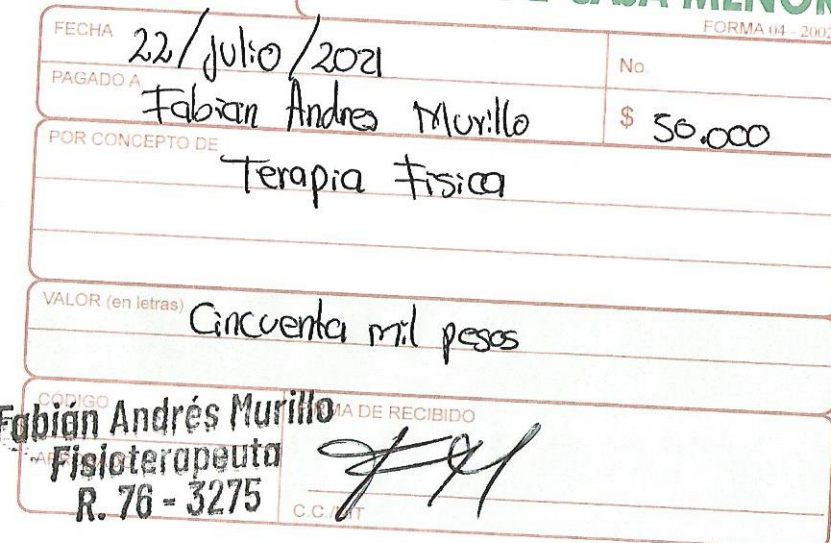 CAJA MENOR
FORMA 04 - 2002
FECHA 22/julio/2021
No.
PAGADO A Fabian Andres Murillo
$ 50.000
POR CONCEPTO DE Terapia Fisica
VALOR (en letras) Cincuenta mil pesos
CÓDIGO
Fabián Andrés Murillo
Fisioterapeuta
R. 76 - 3275
MA DE RECIBIDO
C.C./NIT